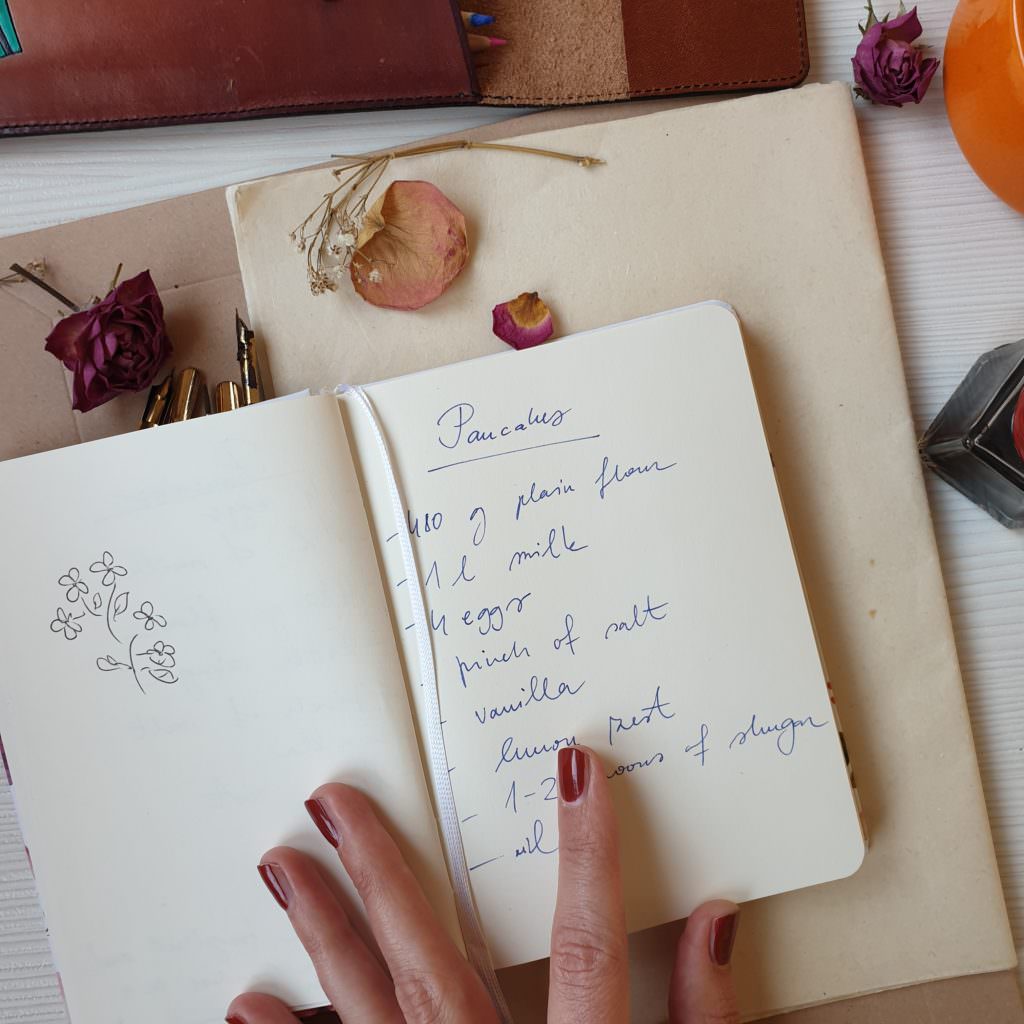 Pancakes
- 480 g plain flour
- 1 l milk
- 4 eggs
pinch of salt
- vanilla
- lemon zest
- 1-2 of shugar